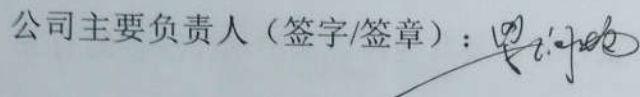 公司主要负责人（签字/签章）：